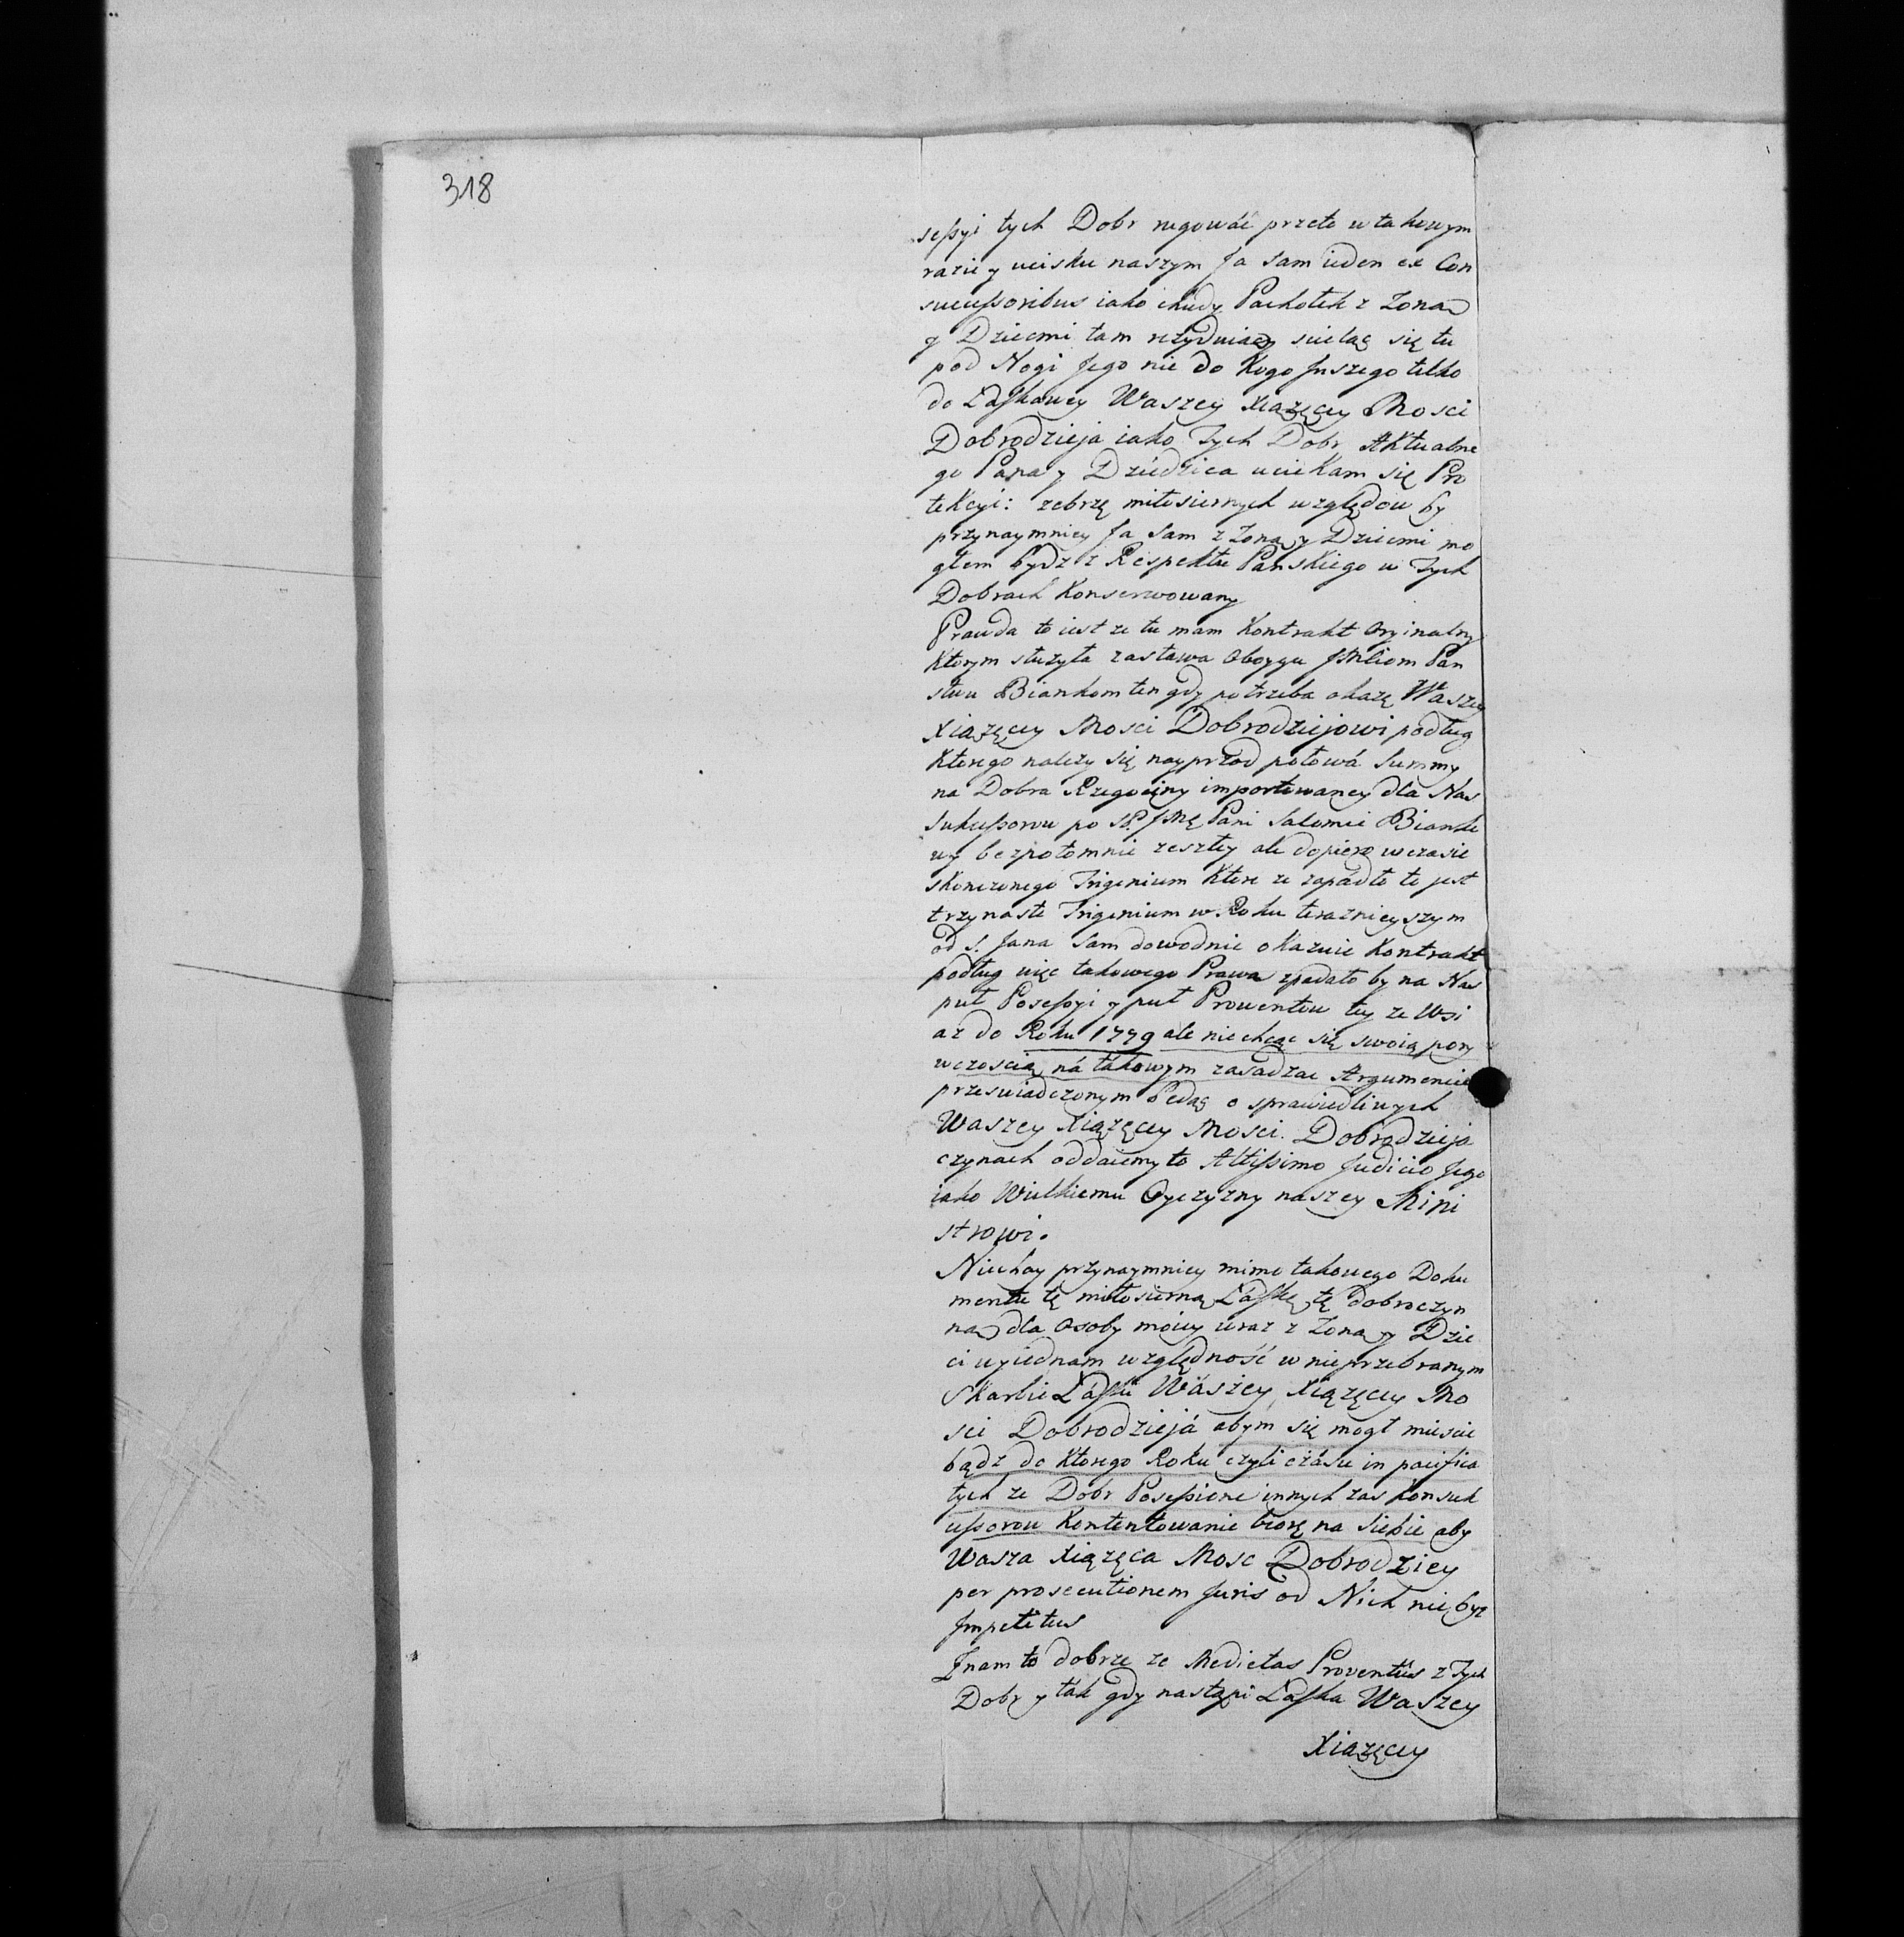 318
sessyi tych Dobr rugować przeto w takowym
razie y ucisku naszym Ja sam ieden ex Con
sucessoribus iako chudy Pachołek z Zoną
y Dziecmi tam rezyduiący scieląc się tu
pod Nogi Jego nie do Kogo Inszego tilko
do Łaskawey Waszey Xiążęcey Mosci
Dobrodzieja iako Tych Dobr Aktualne
go Pana y Dziedzica uciekam się Pro
tekcyi: zebrzę miłosiernych względow by
przynaymniey Ja Sam z Zoną y Dziecmi mo
głem bydz z Respektu Panskiego w Tych
Dobrach Konserwowany
Prawda to iest ze tu mam Kontrakt Oryinalny
Ktorym służyła zastawa Oboygu JMściom Pan
stwu Biankom ten gdy potrzeba okazę Waszey
Xiążęcey Mosci Dobrodziejowi podług
Ktorego należy się nayprzod połowa Summy
na Dobra Rzegociny importowaney dla Nas
Sukcessorow po SP. JMę Pani Salomei Bianko
wy bezpotomnie zeszłey ale dopiero w czasie
skonczonego Trigenium Ktore ze zapadło to jest
trzynaste Trigenium w Roku teraznieyszym
od S. Jana Sam dowodnie okazuie Kontrakt
podług więc takowego Prawa spadało by na Nas
puł Posessyi y puł Prowentow tey ze Wsi
az do Roku 1779 ale niechcąc się swoią pory
wczoscią ná tákowym zasadzac Argumencie
przeswiadczonym będąc o sprawiedliwych
Waszey Xiążęcey Mosci Dobrodzieja
czynach oddaiemy to Altissimo Judicio Jego
iako Wielkiemu Oyczyzny naszey Mini
strowi.
Niechay przynaymniey mimo takowego Doku
mentu tę miłosierną Łaskę, tę dobroczyn
ną dla Osoby moiey wraz z Zoną y Dzie
ci wyiednam względność w nieprzebranym
Skarbie Łaski Waszey Xiążęcey Mo
sci Dobrodzieja abym się mogł miescic
bądz do Ktorego Roku czyli czasu in pacifica
tych ze Dobr Posessione innych zas Konsuk
cessorow Kontentowanie biorę na Siebie aby
Wasza Xiążęca Mosc Dobrodziey
per prosecutionem Juris od Nich nie był
Impetitus
Znam to dobrze ze Medietas Proventus z Tych
Dobr y ták gdy nastąpi Łaska Waszey
Xiążęcey